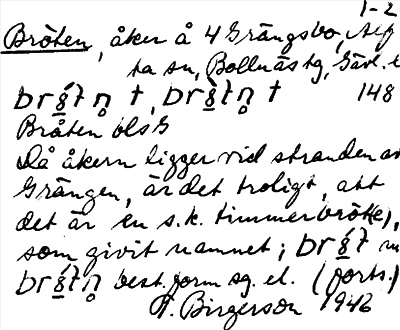 1-2
Bröten, åker å 4 Grängsbo, Alf
ta sn, Bollnäs tg, Gävl. l
148
Bråten bls G
Då åkern ligger vid stranden av
Grängen, är det troligt, att
det är en s.k. timmerbröt(e),
som givit namnet;
best. form sg. el. (forts.)
A. Birgerson 1946